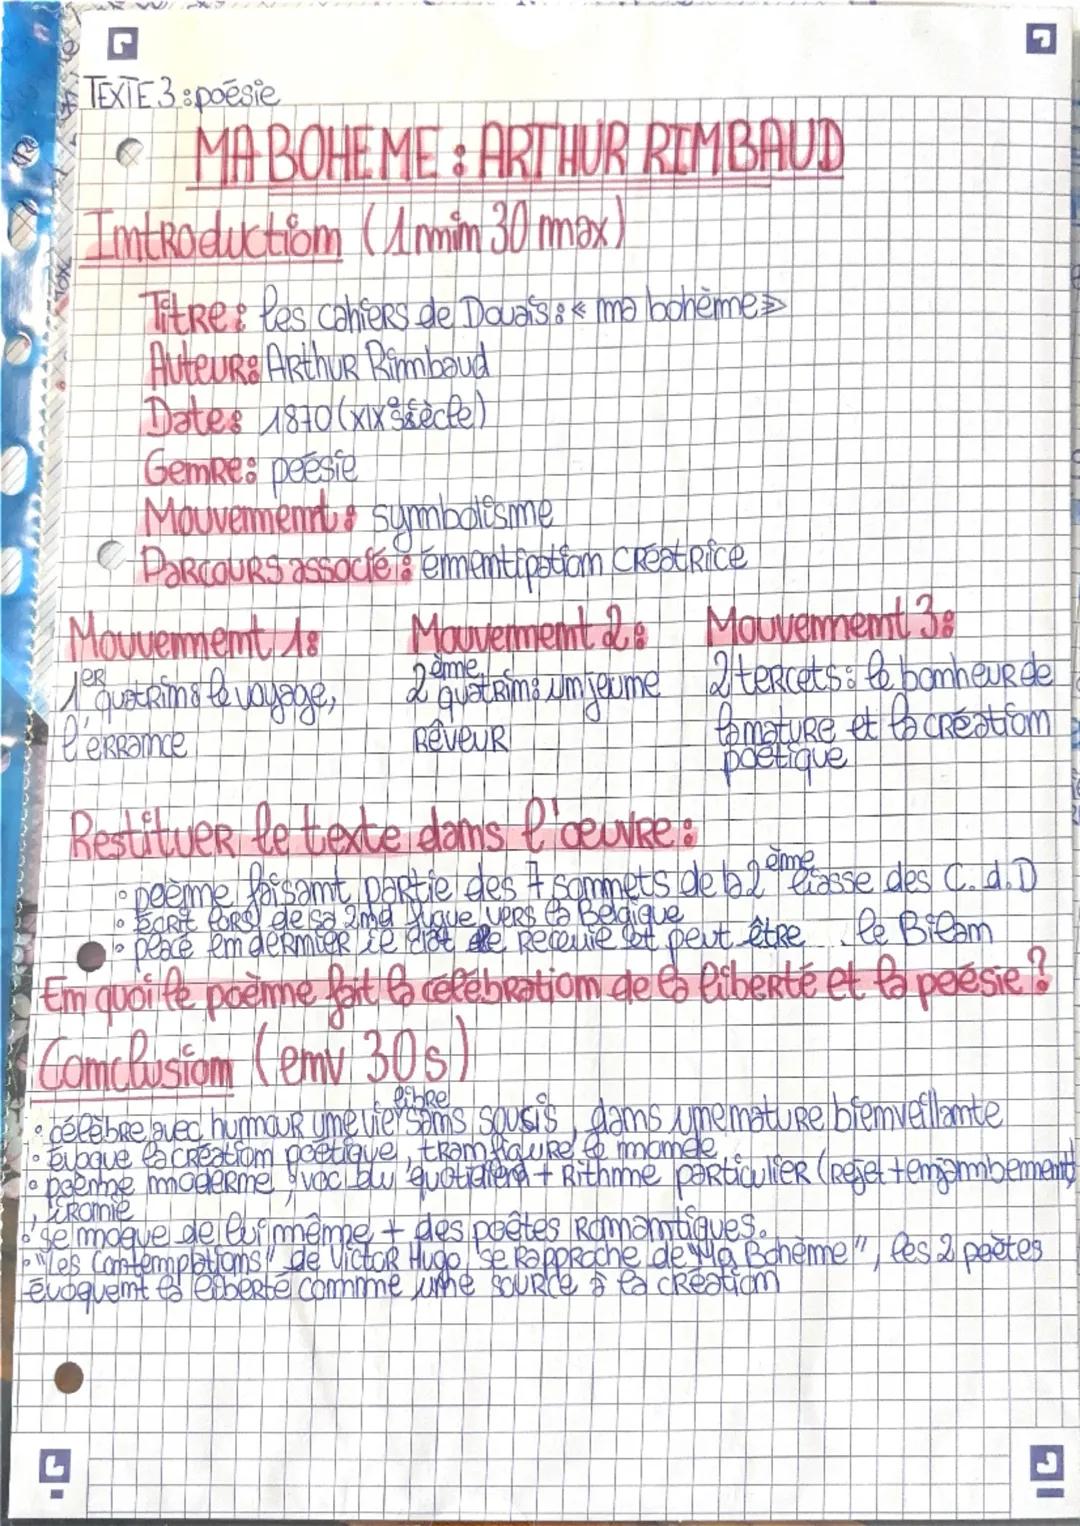 TEXTE 3 : poésie
MA BOHEME : ARTHUR RIMBAUD
Introduction (1 min 30 max)
Titre : les cahiers de Douais : « ma bohème »
Auteur : Arthur Rimbaud
Date : 1870 (XIXe siècle)
Genre : poésie
Mouvement : symbolisme
Parcours associé : émentipation créatrice
Mouvement 1 : Mouvement 2 : Mouvement 3 :
1er quatrin : le voyage, 2ème quatrin : un jeune 2 tercets : le bonheur de
l'errance rêveur la nature et la création
poétique
Restituer le texte dans l'œuvre :
• poème faisant partie des 7 sonnets de la 2ème liasse des C.d.D
• écrit lors de sa 2nd fugue vers la Belgique
• placé en dernier le recueil et peut être le Bilan
En quoi le poème fait la célébration de la liberté et la poésie ?
Conclusion (env 30s)
• célèbre avec humour une vie libre sans sousis, dans une nature bienveillante
• évoque la création poétique, tranfigure le monde
• poème moderne avac du quotidien + rithme particulier (rejet + enjambement)
, ironie
• se moque de lui même + des poètes romantiques.
• "Les Contemplations" de Victor Hugo, se rapproche de "Ma Bohème", les 2 poètes
évoquent la liberté comme une source à la création